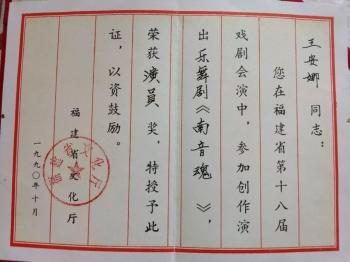 王安娜 同志：
您在福建省第十八届
戏剧会演中，参加创作演
出 乐舞剧《南音魂 》，
荣获 演員 奖，特授予此
证，以资鼓励。
福建省文化厅
一九九〇年十月